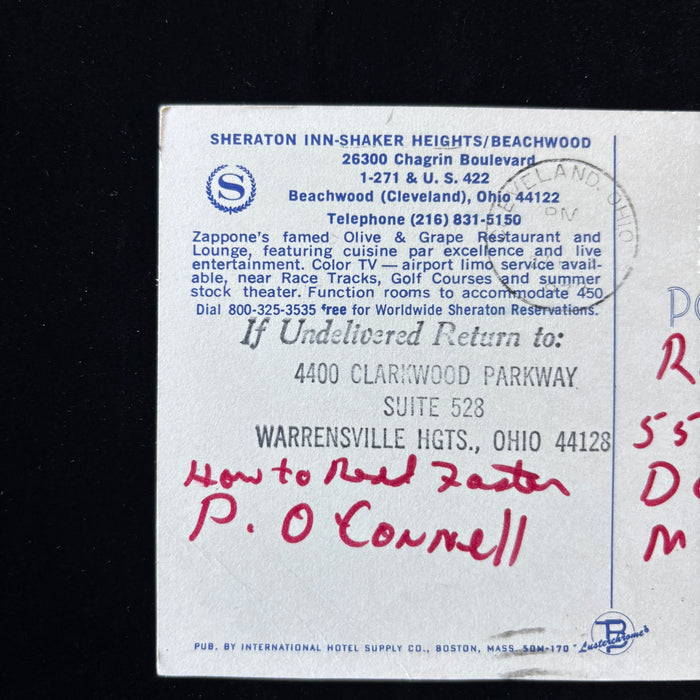 SHERATON INN-SHAKER HEIGHTS/BEACHWOOD
26300 Chagrin Boulevard
1-271 & U. S. 422
Beachwood (Cleveland), Ohio 44122
Telephone (216) 831-5150
S
CLEVELAND, OHIO
PM
Zappone's famed Olive & Grape Restaurant and
Lounge, featuring cuisine par excellence and live
entertainment. Color TV — airport limo service avail-
able, near Race Tracks, Golf Courses and summer
stock theater. Function rooms to accommodate 450
Dial 800-325-3535 free for Worldwide Sheraton Reservations.
If Undelivered Return to:
4400 CLARKWOOD PARKWAY
SUITE 528
WARRENSVILLE HGTS., OHIO 44128
How to Read Faster
P. O'Connell
PO
R
55
D
M
PUB. BY INTERNATIONAL HOTEL SUPPLY CO., BOSTON, MASS. 50M-170
Lusterchrome